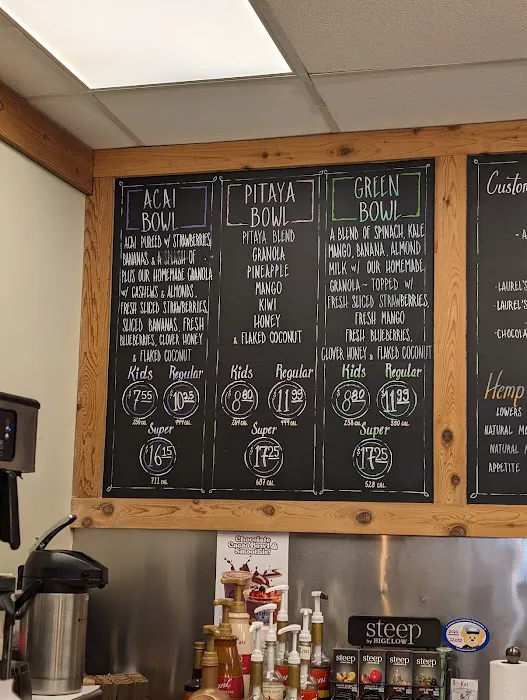 ACAI
BOWL
ACAI PUREED W/ STRAWBERRIES,
BANANAS & A SPLASH OF
PLUS OUR HOMEMADE GRANOLA
W/ CASHEWS & ALMONDS,
FRESH SLICED STRAWBERRIES,
SLICED BANANAS, FRESH
BLUEBERRIES, CLOVER HONEY
& FLAKED COCONUT
Kids Regular
$7.55 $10.25
444 CAL.
Super
$16.15
711 CAL.
PITAYA
BOWL
PITAYA BLEND
GRANOLA
PINEAPPLE
MANGO
KIWI
HONEY
& FLAKED COCONUT
Kids Regular
$8.80 $11.99
444 CAL.
Super
$17.25
687 CAL.
GREEN
BOWL
A BLEND OF SPINACH, KALE
MANGO, BANANA, ALMOND
MILK W/ OUR HOMEMADE
GRANOLA ~ TOPPED W/
FRESH SLICED STRAWBERRIES,
FRESH MANGO
FRESH BLUEBERRIES,
CLOVER HONEY & FLAKED COCONUT
Kids Regular
$8.80 $11.99
258 CAL. 330 CAL.
Super
$17.25
528 CAL.
Custom
- A
- LAUREL'S
- LAUREL'S
- CHOCOLA
Hemp
LOWERS
NATURAL ME
NATURAL M
APPETITE
Chocolate
Cacao Bowl &
Smoothie!
steep
by BIGELOW
steep steep steep steep